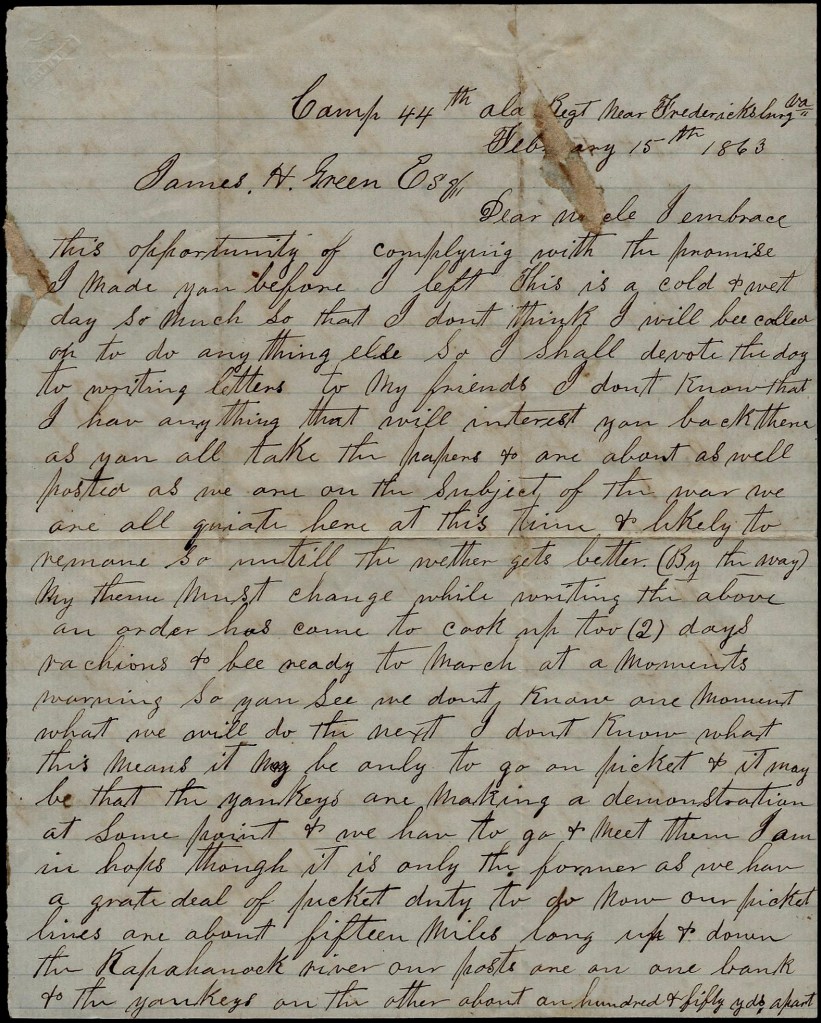 Camp 44th ala Regt Near Fredericksburg va
February 15th 1863
James. H. Green Esq
Dear uncle I embrace
this opportunity of complying with the promise
I made you before I left This is a cold & wet
day so much so that I dont think I will bee called
on to do any thing else So I shall devote the day
to writing letters to My friends I dont Know that
I hav anything that will interest you back there
as you all take the papers & are about as well
posted as we are on the Subject of the war we
are all quiate here at this time & likely to
remane so untill the wether gets better. (By the way)
My theme Must change while writing the above
an order has come to cook up too (2) days
rachions & bee ready to March at a Moments
warning So you See we dont Know one Moment
what we will do the next I dont Know what
this Means it May be only to go on picket & it may
be that the yankeys are Making a demonstration
at Some point & we hav to go & Meet them I am
in hops though it is only the former as we hav
a grate deal of picket duty to do Now our picket
lines are about fifteen Miles long up & down
the Rapahanock river our posts are on one bank
& the yankeys on the other about an hundred & fifty yds apart